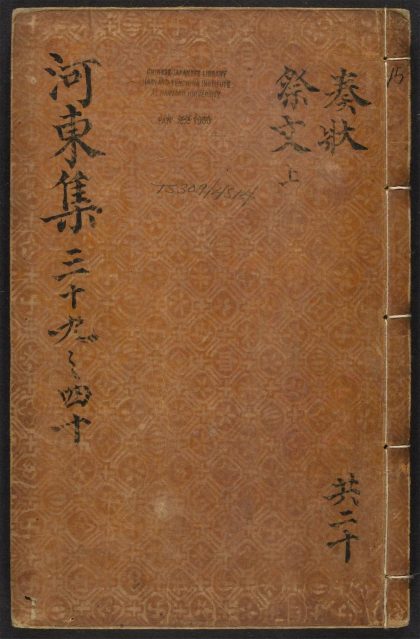 15
奏狀
祭文上
共二十
CHINESE-JAPANESE LIBRARY
HARVARD-YENCHING INSTITUTE
AT HARVARD UNIVERSITY
河東集 三十九之四十